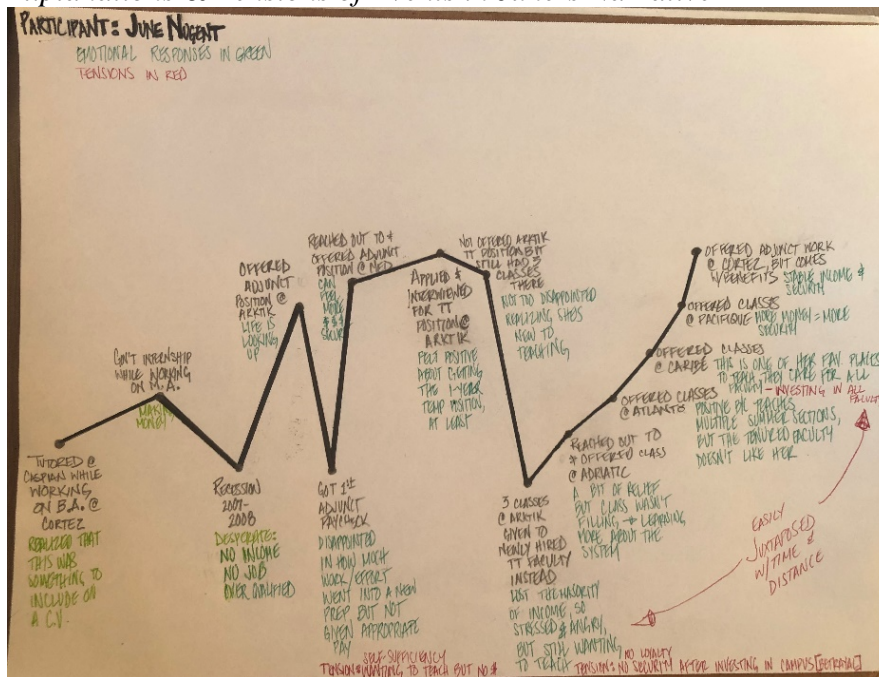 PARTICIPANT: JUNE NUGENT
EMOTIONAL RESPONSES IN GREEN
TENSIONS IN RED
TUTORED @
CASPIAN WHILE
WORKING
ON B.A. @
CORTEZ
REALIZED THAT
THIS WAS
SOMETHING TO
INCLUDE ON
A C.V.
GOV'T INTERNSHIP
WHILE WORKING
ON M.A.
MAKING
MONEY
RECESSION
2007-
2008
DESPERATE:
NO INCOME
NO JOB
OVER QUALIFIED
OFFERED
ADJUNCT
POSITION @
ARKTIK
LIFE IS
LOOKING
UP
GOT 1ST
ADJUNCT
PAYCHECK
DISAPPOINTED
IN HOW MUCH
WORK/EFFORT
WENT INTO A NEW
PREP, BUT NOT
GIVEN APPROPRIATE
PAY
SELF-SUFFICIENCY
TENSION: WANTING TO TEACH BUT NO $
REACHED OUT TO &
OFFERED ADJUNCT
POSITION @ MED
CAN
FEEL
MORE
$ $ $
SECURE
APPLIED &
INTERVIEWED
FOR TT
POSITION @
ARKTIK
FELT POSITIVE
ABOUT GETTING
THE 1-YEAR
TEMP POSITION,
AT LEAST
NOT OFFERED ARKTIK
TT POSITION BUT
STILL HAD 3
CLASSES
THERE
NOT TOO DISAPPOINTED
REALIZING SHE'S
NEW TO
TEACHING
3 CLASSES
@ ARKTIK
GIVEN TO
NEWLY HIRED
TT FACULTY
INSTEAD
LOST THE MAJORITY
OF INCOME, SO
STRESSED & ANGRY,
BUT STILL WANTING
TO TEACH
NO LOYALTY
TENSION: NO SECURITY AFTER INVESTING IN CAMPUS [BETRAYAL]
REACHED OUT TO
& OFFERED CLASS
@ ADRIATIC
A BIT OF RELIEF
BUT CLASS WASN'T
FILLING → LEARNING
MORE ABOUT THE
SYSTEM
OFFERED CLASSES
@ ATLANTIS
POSITIVE B/C TEACHES
MULTIPLE SUMMER SECTIONS,
BUT THE TENURED FACULTY
DOESN'T LIKE HER
OFFERED CLASSES
@ CARIBE THIS IS ONE OF HER FAV PLACES
TO TEACH, THEY CARE FOR ALL
FACULTY - INVESTING IN ALL
FACULTY
OFFERED CLASSES
@ PACIFIQUE MORE MONEY = MORE
SECURITY
OFFERED ADJUNCT WORK
@ CORTEZ, BUT COMES
W/BENEFITS STABLE INCOME &
SECURITY
EASILY
JUXTAPOSED
W/TIME &
DISTANCE